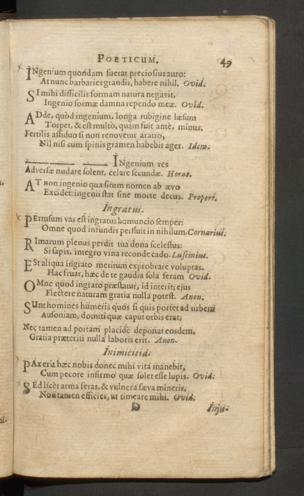 POETICUM. 49
INgenium quondam fuerat preciosius auro:
At nunc barbaries grandis, habere nihil. Ovid.
SI mihi difficilis formam natura negavit,
Ingenio formæ damna rependo meæ. Ovid.
ADde, quòd ingenium, longa rubigine læsum
Torpet, & est multò, quam fuit antè, minus.
Fertilis assiduo si non renovetur aratro,
Nil nisi cum spinis gramen habebit ager. Idem.
INgenium res
Adversæ nudare solent, celare secundæ. Horat.
AT non ingenio quæsitum nomen ab ævo
Excidet: ingenii stat sine morte decus. Propert.
Ingratus.
PErtusum vas est ingratus homuncio semper:
Omne quod infundis perfluit in nihilum. Cornarius.
RImarum plenus perdit tua dona scelestus:
Si sapis, integro vina reconde cado. Luscinius.
ESt aliqua ingrato meritum exprobrare voluptas.
Hac fruar, hæc de te gaudia sola feram Ovid.
OMne quod ingrato præstatur, id interit; ejus
Flectere naturam gratia nulla potest. Anon.
SUnt homines humeris quos si quis portet ad urbem
Ausoniam, domiti quæ caput orbis erat;
Nec tamen ad portam placidè deponat eosdem,
Gratia præteriti nulla laboris erit. Anon.
Inimicitiæ.
PAx eria hæc nobis donec mihi vita manebit,
Cum pecore infirmo quæ solet esse lupis. Ovid.
SEd licèt arma feras, & vulnera sæva mineris,
Non tamen efficies, ut timeare mihi. Ovid.
D Inju-